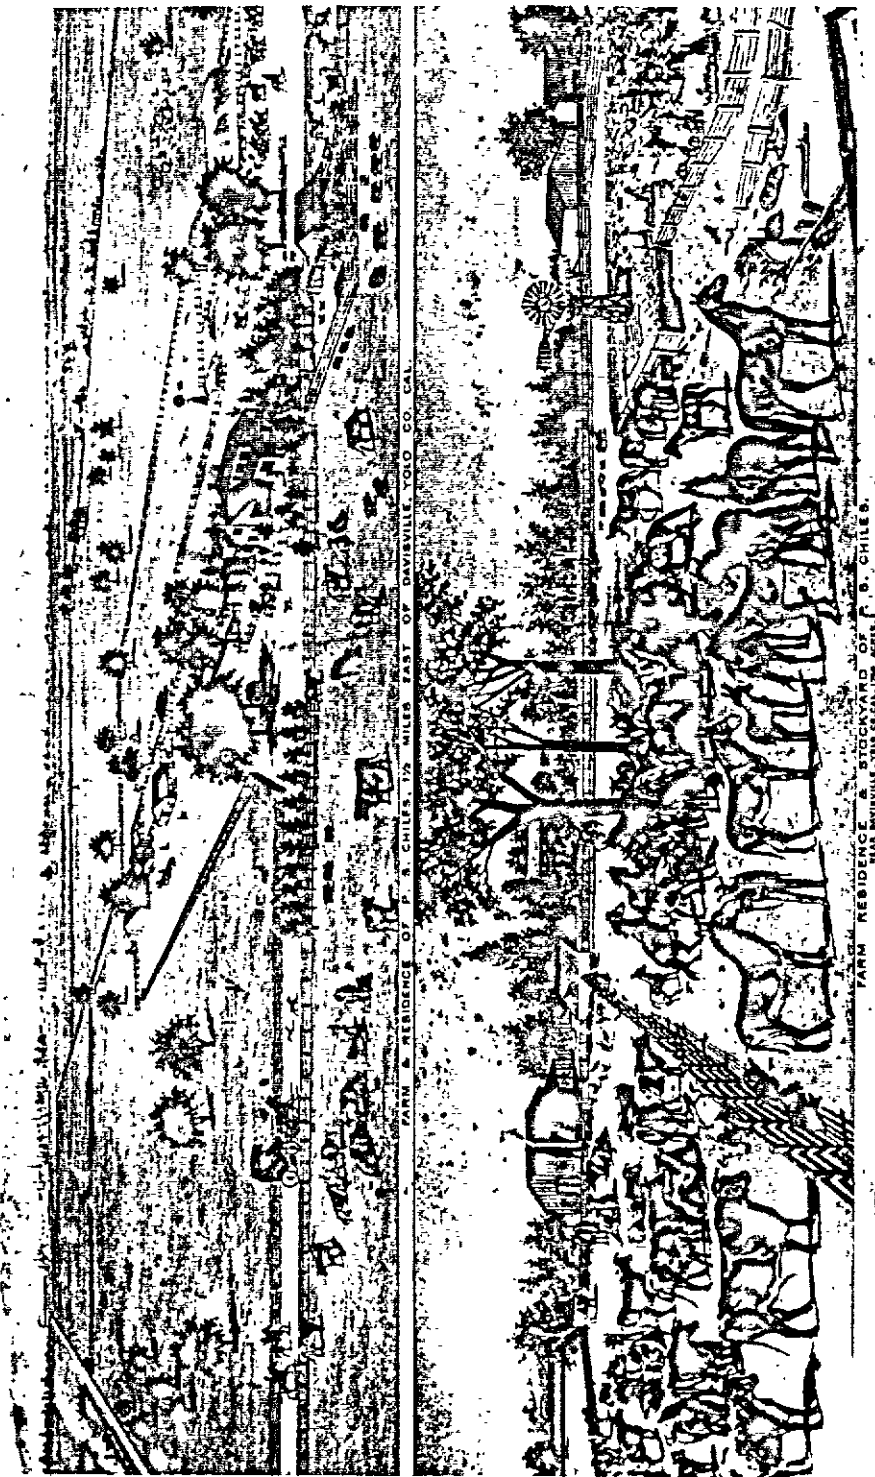 FARM & RESIDENCE OF P. S. CHILES, 1½ MILES EAST OF DAVISVILLE, YOLO CO. CAL.
FARM RESIDENCE & STOCKYARD OF P. S. CHILES.
NEAR DAVISVILLE, YOLO CO. CAL. ACRES